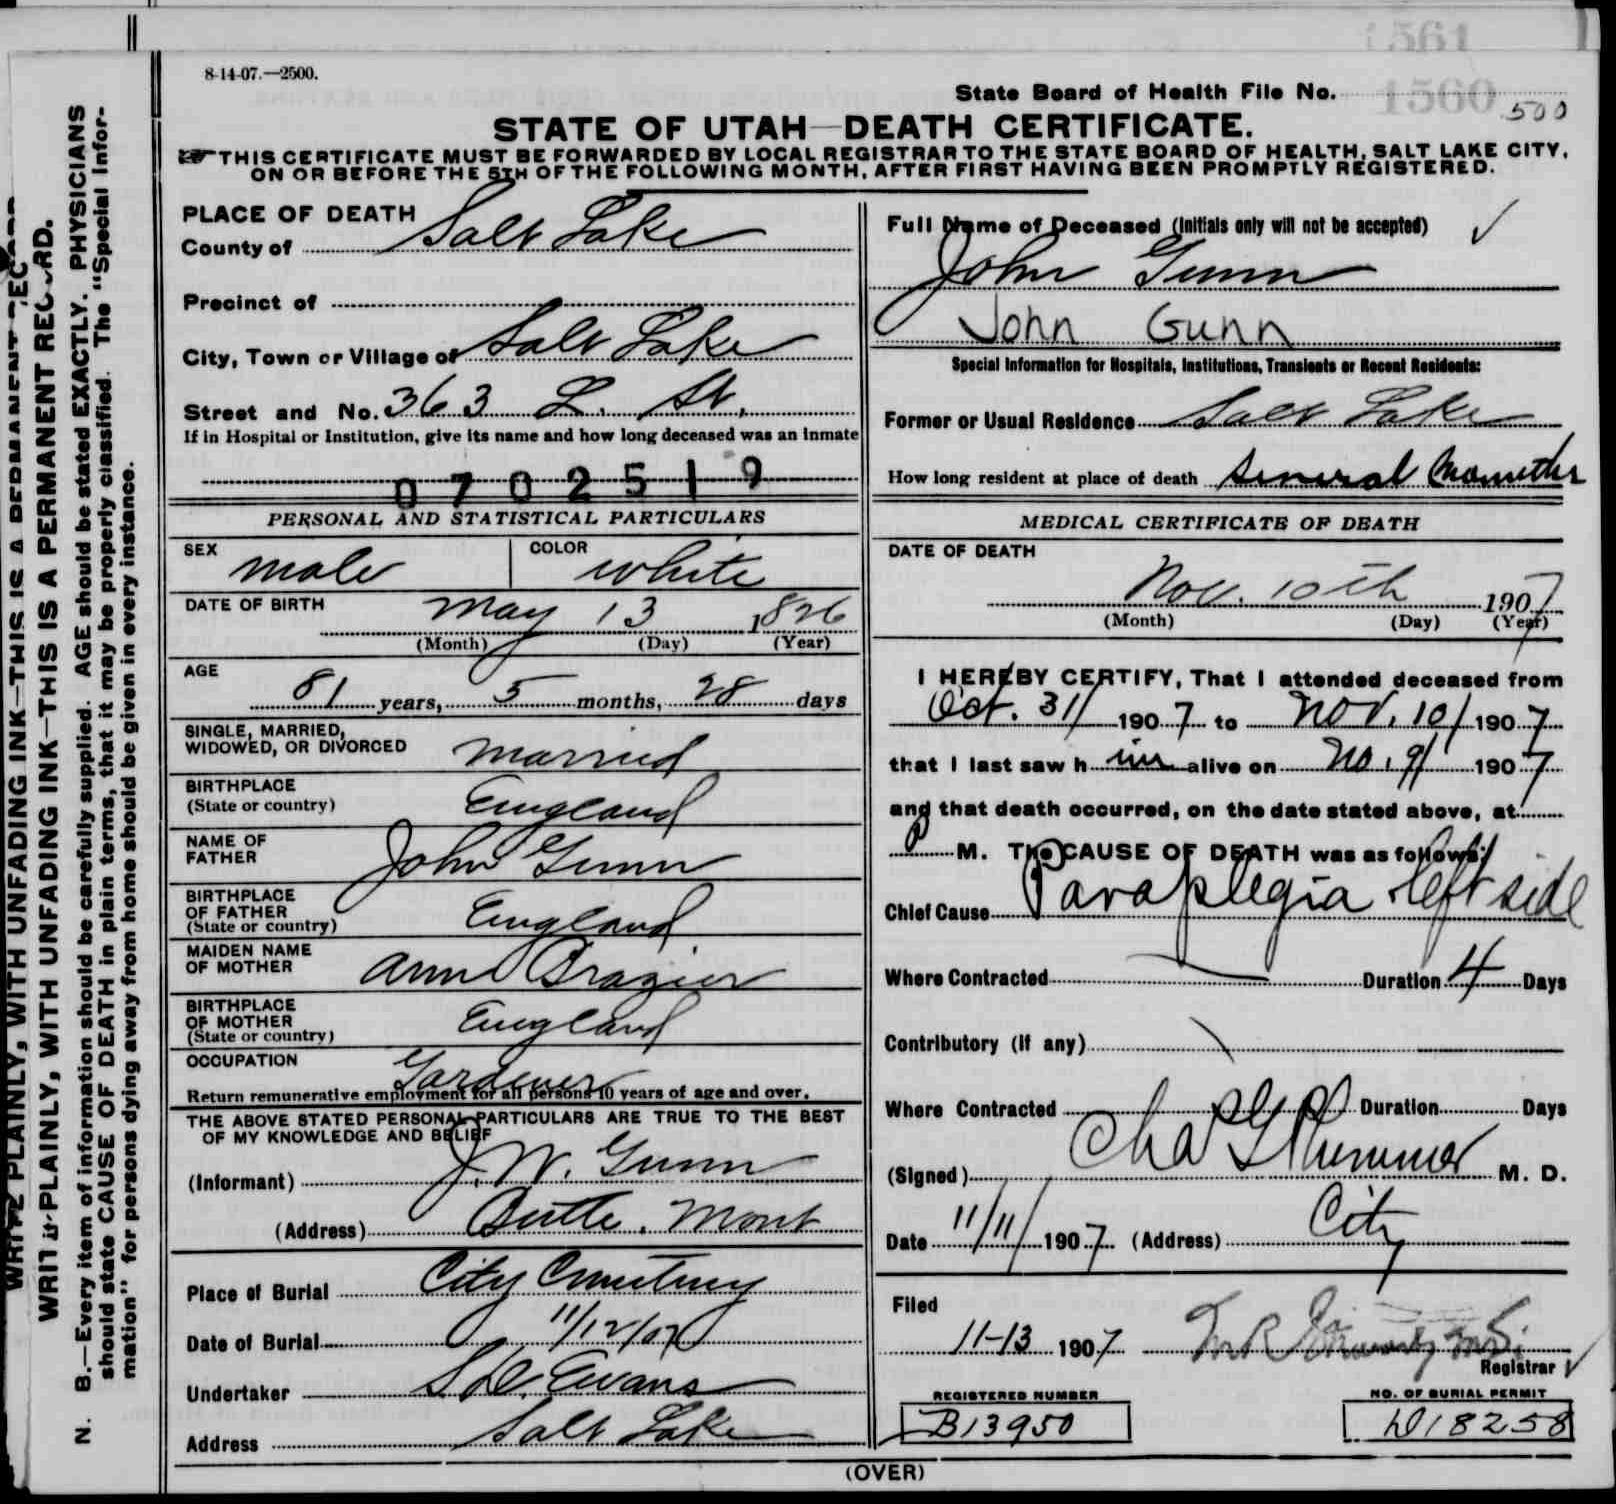 1561
8-14-07.—2500.
State Board of Health File No. 1560 500
STATE OF UTAH—DEATH CERTIFICATE.
THIS CERTIFICATE MUST BE FORWARDED BY LOCAL REGISTRAR TO THE STATE BOARD OF HEALTH, SALT LAKE CITY,
ON OR BEFORE THE 5TH OF THE FOLLOWING MONTH, AFTER FIRST HAVING BEEN PROMPTLY REGISTERED.
WRITE PLAINLY, WITH UNFADING INK—THIS IS A PERMANENT RECORD.
N. B.—Every item of information should be carefully supplied. AGE should be stated EXACTLY. PHYSICIANS
should state CAUSE OF DEATH in plain terms, that it may be properly classified. The "Special Infor-
mation" for persons dying away from home should be given in every instance.
PLACE OF DEATH
County of Salt Lake
Precinct of
City, Town or Village of Salt Lake
Street and No. 363 L. St.
If in Hospital or Institution, give its name and how long deceased was an inmate
0702519
PERSONAL AND STATISTICAL PARTICULARS
SEX male COLOR white
DATE OF BIRTH May 13 1826
(Month) (Day) (Year)
AGE
81 years, 5 months, 28 days
SINGLE, MARRIED,
WIDOWED, OR DIVORCED married
BIRTHPLACE
(State or country) England
NAME OF
FATHER John Gunn
BIRTHPLACE
OF FATHER
(State or country) England
MAIDEN NAME
OF MOTHER Ann Brazier
BIRTHPLACE
OF MOTHER
(State or country) England
OCCUPATION Gardener
Return remunerative employment for all persons 10 years of age and over.
THE ABOVE STATED PERSONAL PARTICULARS ARE TRUE TO THE BEST
OF MY KNOWLEDGE AND BELIEF
(Informant) J. W. Gunn
(Address) Butte. Mont
Place of Burial City Cemetery
Date of Burial 11/12/07
Undertaker S. D. Evans
Address Salt Lake
Full Name of Deceased (Initials only will not be accepted)
John Gunn
John Gunn
Special Information for Hospitals, Institutions, Transients or Recent Residents:
Former or Usual Residence Salt Lake
How long resident at place of death Several Months
MEDICAL CERTIFICATE OF DEATH
DATE OF DEATH
Nov. 10th 1907
(Month) (Day) (Year)
I HEREBY CERTIFY, That I attended deceased from
Oct. 31/ 1907 to Nov. 10/ 1907
that I last saw him alive on No. 9/ 1907
and that death occurred, on the date stated above, at
P M. The CAUSE OF DEATH was as follows:
Chief Cause Paraplegia left side
Where Contracted Duration 4 Days
Contributory (if any)
Where Contracted Duration Days
(Signed) Chas G Plummer M. D.
Date 11/11/ 1907 (Address) City
Filed
11-13 1907
Registrar
REGISTERED NUMBER
B13950
NO. OF BURIAL PERMIT
D18258
(OVER)